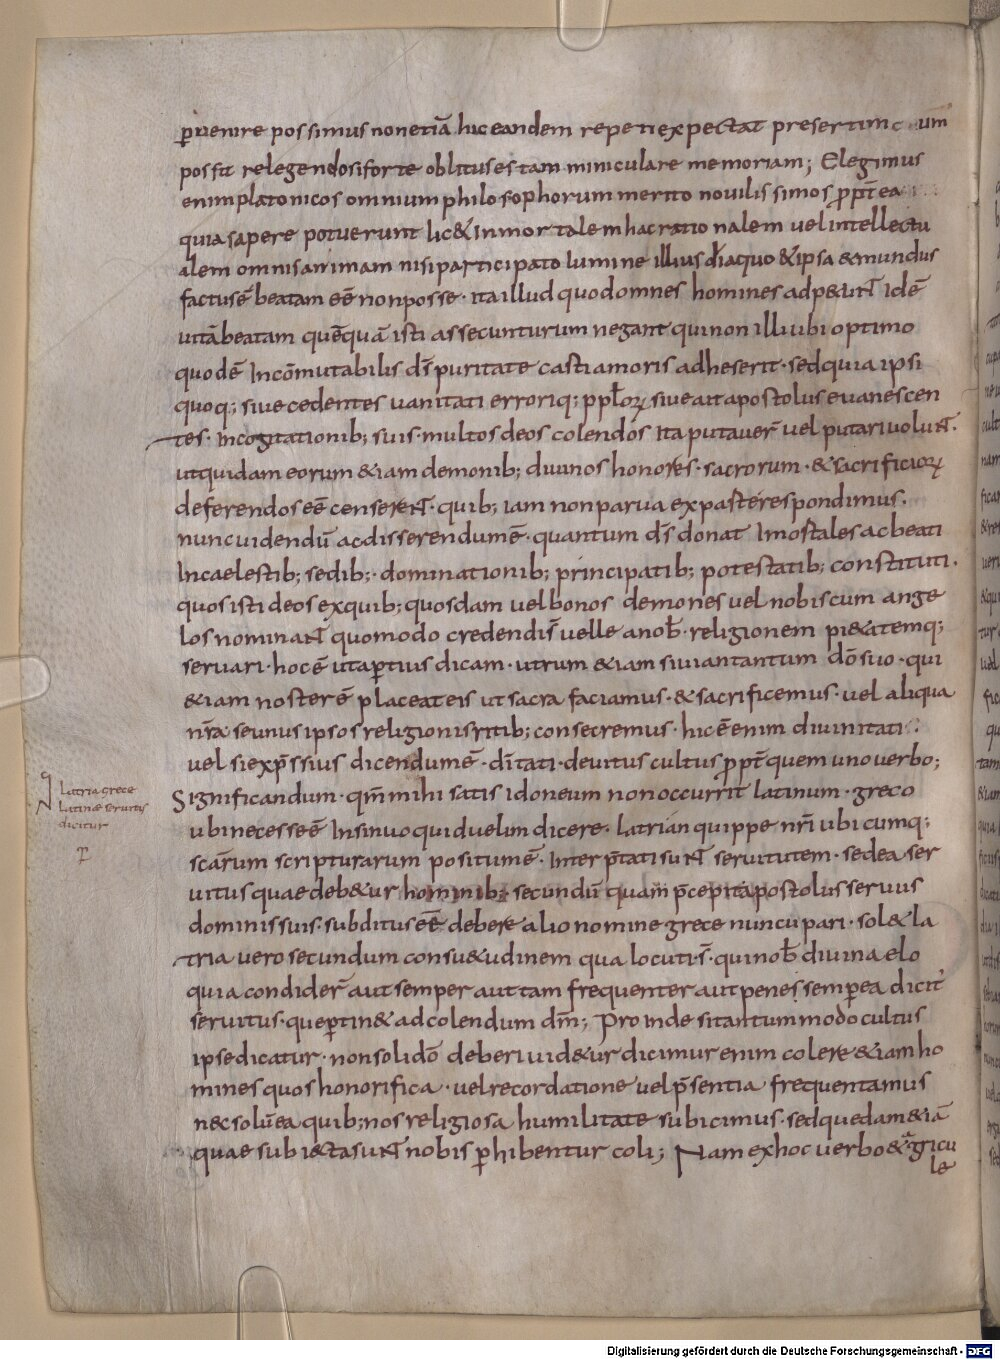 ꝑuenire possimus non etiā hic eandem repeti expectat presertim cum
possit relegendo si forte oblitus es tam miniculare memoriam; Elegimus
enim platonicos omnium philosophorum merito nouilissimos ꝓpt̄ea
quia sapere potuerunt lic& inmortalem hac rationalem uel intellectu
alem omnis animam nisi participato lumine illius d̄i a quo & ipsa & mundus
factus ē beatam eē non posse · ita illud quod omnes homines adp&unt idē
uitā beatam quēquā isti assecunturum negant qui non illi ubi optimo
quod ē Incōmutabilis d̄s puritate casti amoris adheserit · sed quia ipsi
quoq; siue cedentes uanitati erroriq; pplōꝝ siue ait apostolus euanescen
tes · Incogitationib; suis · multos deos colendos Ita putauer̄ uel putari uolunt ·
ut quidam eorum &iam demonib; diuinos honores · sacrorum · & sacrificioꝝ
deferendos eē censerent · quib; iam non parua ex paste respondimus ·
nunc uidendū ac disserendum ē · quantum d̄s donat Imostales ac beati
In caelestib; sedib; · dominationib; principatib; potestatib; constituti ·
quos isti deos ex quib; quosdam uel bonos demones uel nobiscum ange
los nominant quomodo credendi s̄ uelle a nob̄ · religionem pi&atemq;
seruari · hoc ē ut apertius dicam · utrum &iam siui an tantum dō suo · qui
&iam noster ē placeat eis ut sacra faciamus · & sacrificemus · uel aliqua
nr̄a seu nus ipsos religionis ritib; consecremus · hic ē enim diuinitati ·
uel si exp̄ssius dicendum ē · dītati · deuitus cultus ꝓpt̄ quem uno uerbo;
Significandum · qm̄ mihi satis idoneum non occurrit latinum · greco
ubi necesse ē Insinuo qui duelim dicere · latrian quippe nr̄i ubicumq;
scārum scripturarum positum ē · Interp̄tati sunt seruitutem · sed ea ser
uitus quae deb&ur hominib; secundū quam p̄cepit apostolus seruus
dominis suis · subditus eē debere alio nomine grece nuncupari · sol& la
tria uero secundum consu&udinem qua locuti s̄ · qui nob̄ diuina elo
quia condider̄ aut semper aut tam frequenter aut penes semper ea dicit̄
seruitus · que ꝑtin& ad colendum dm̄; Pro inde si tantummodo cultus
ipse dicatur · non soli dō deberi uid&ur dicimur enim colere &iam ho
mines quos honorifica · uel recordatione uel p̄sentia frequentamus
nec solū ea quib; nos religiosa humilitate subicimus · sed quedam &iā
quae subi&ta sunt nobis ꝑhibentur coli; Nam ex hoc uerbo & agricu
le
latria grece
latinæ seruitꝰ
dicitur
Digitalisierung gefördert durch die Deutsche Forschungsgemeinschaft - DFG